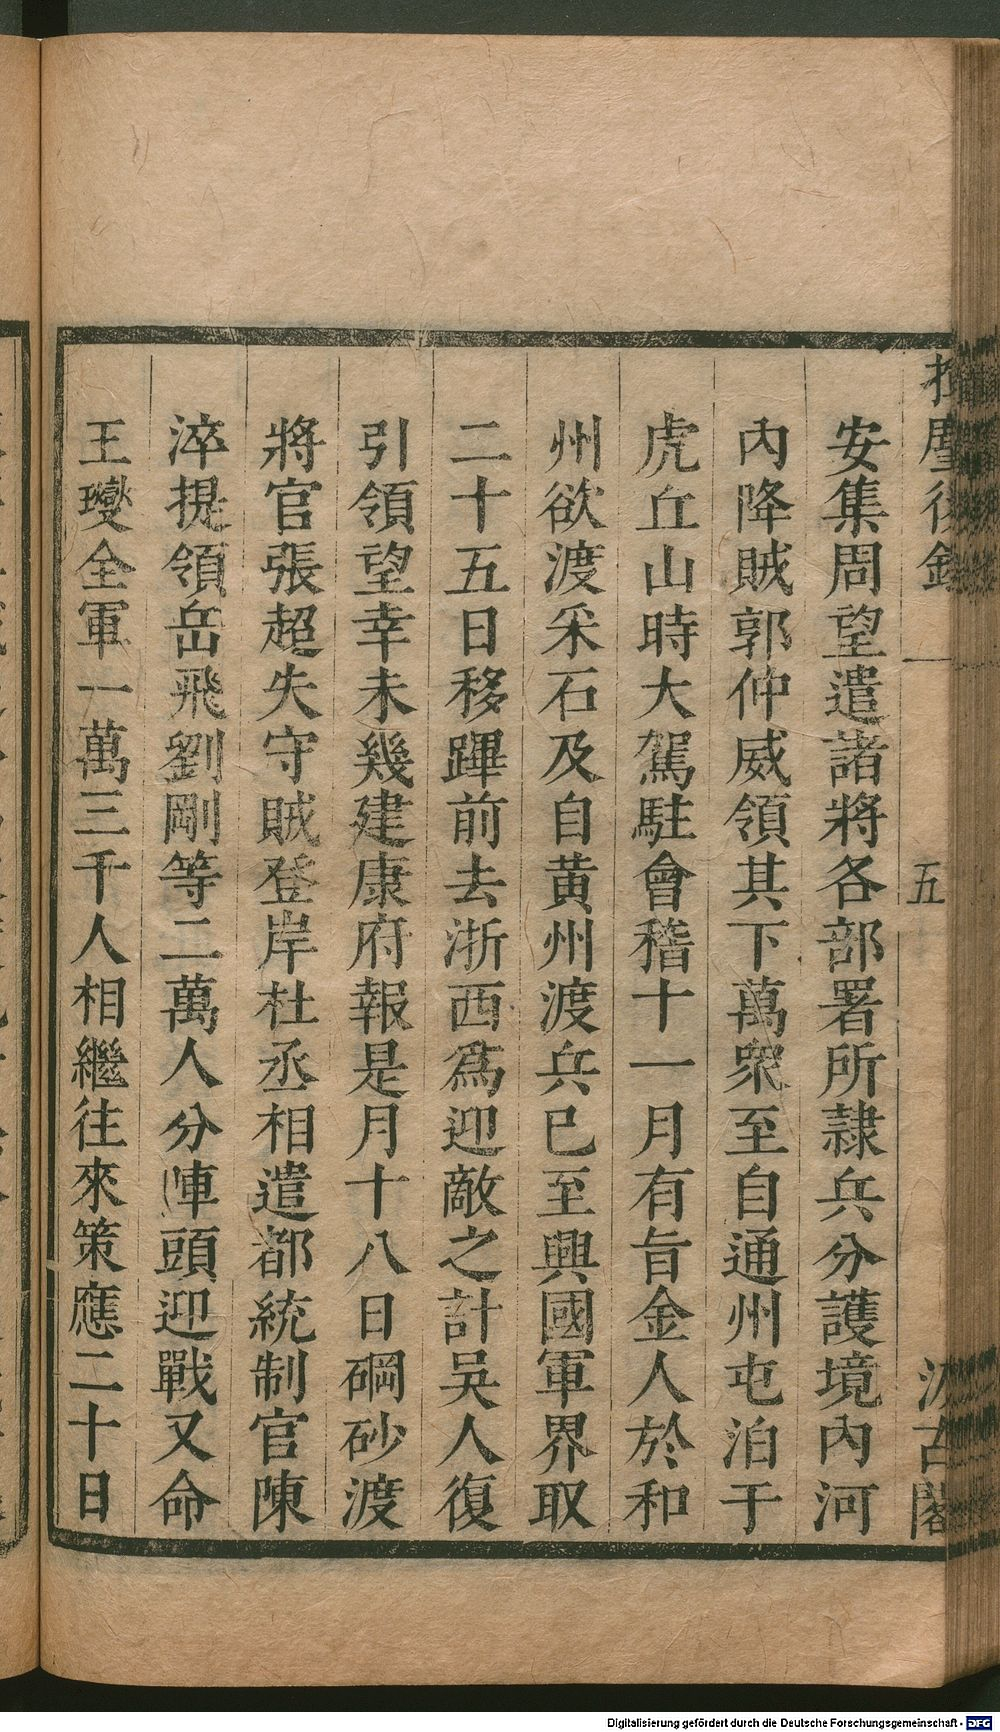 揮麈後錄
五
汲古閣
安集周望遣諸將各部署所隷兵分護境內河
內降賊郭仲威領其下萬衆至自通州屯泊于
虎丘山時大駕駐會稽十一月有旨金人於和
州欲渡采石及自黃州渡兵已至興國軍界取
二十五日移蹕前去浙西爲迎敵之計吳人復
引領望幸未幾建康府報是月十八日碙砂渡
將官張超失守賊登岸杜丞相遣都統制官陳
淬提領岳飛劉剛等二萬人分陣頭迎戰又命
王𤫉全軍一萬三千人相繼往來策應二十日
Digitalisierung gefördert durch die Deutsche Forschungsgemeinschaft - DFG